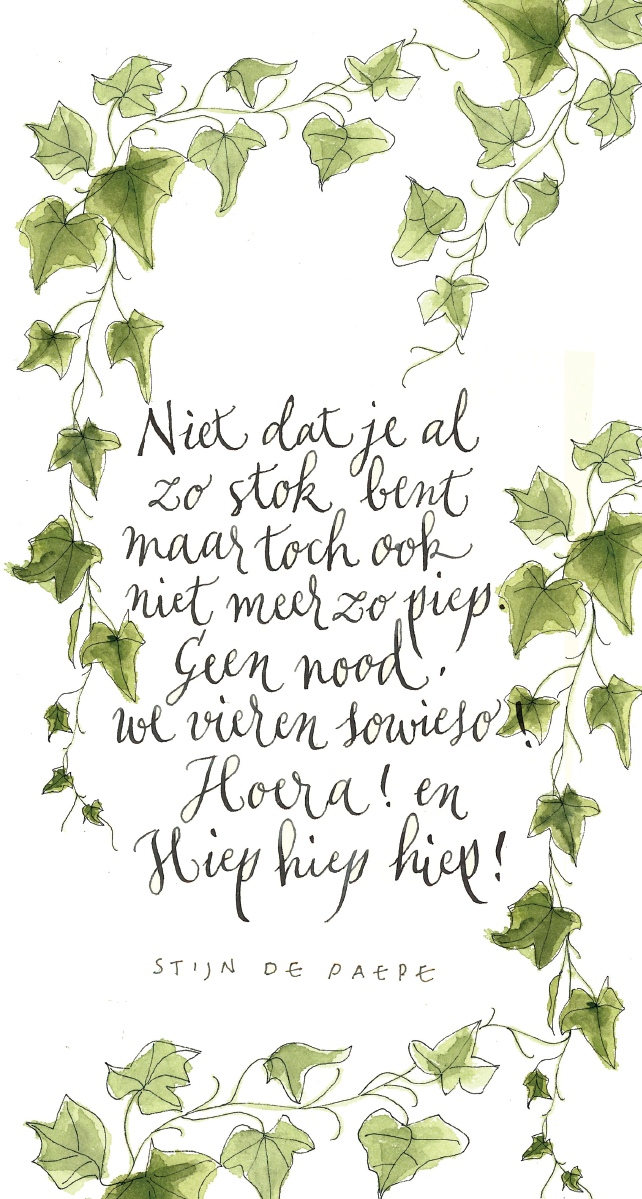 Niet dat je al
zo stok bent
maar toch ook
niet meer zo piep.
Geen nood,
we vieren sowieso!
Hoera! en
Hiep hiep hiep!
STIJN DE PAEPE